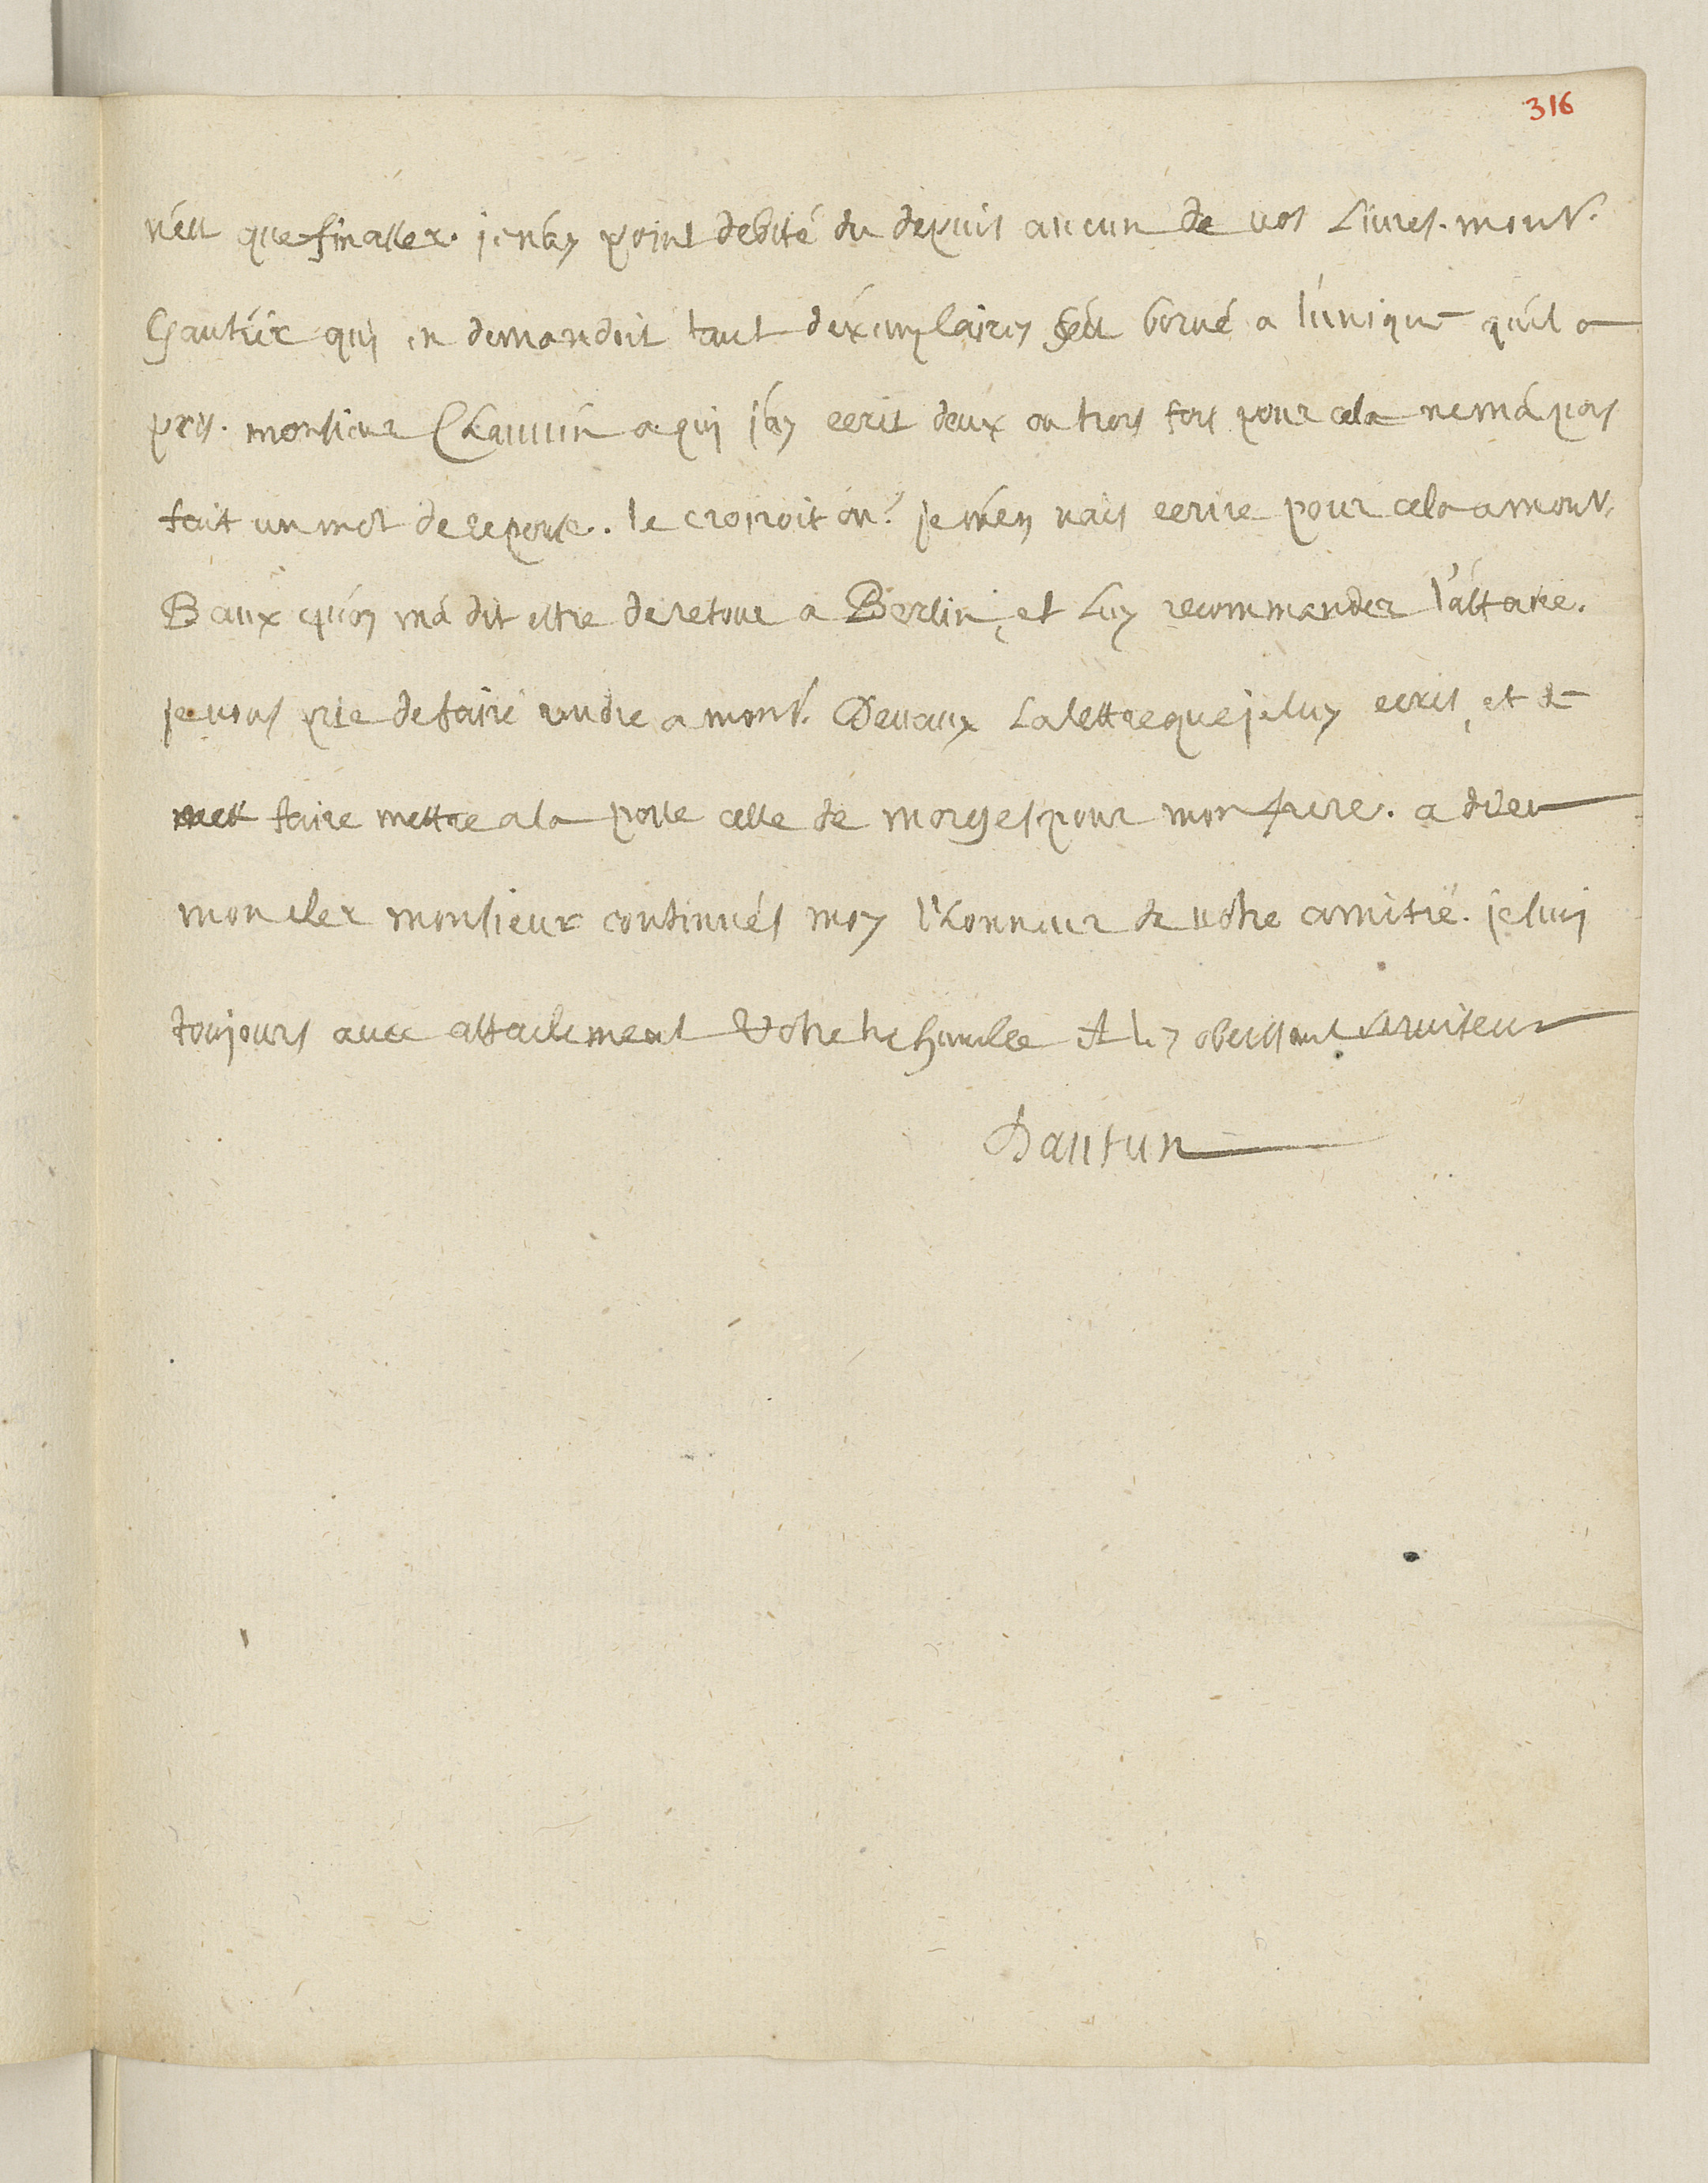 316
n'est que finasser. je n'áy point debité du depuis aucun de vos Livres. monsr.
Gautier qui en demandoit tant d'éxemplaires s'est borné a l'unique qu'il a
pris. monsieur Chauvin a qui j'áy ecrit deux ou trois fois pour cela ne m'á pas
fait un mot de reponse. le croiroit on? je m'en vais ecrire pour cela a monsr.
Baux qu'on m'á dit estre de retour a Berlin, et Luy recommander l'affaire.
je vous prie de faire rendre a monsr. Devaux La lettre que je luy ecris, et de
faire mettre a la poste celle de morges pour mon frere. a dieu
mon cher monsieur continués moy l'honneur de vostre amitié. je suis
toujours avec attachement Vostre tres humble et tres obeissant serviteur
Dautun